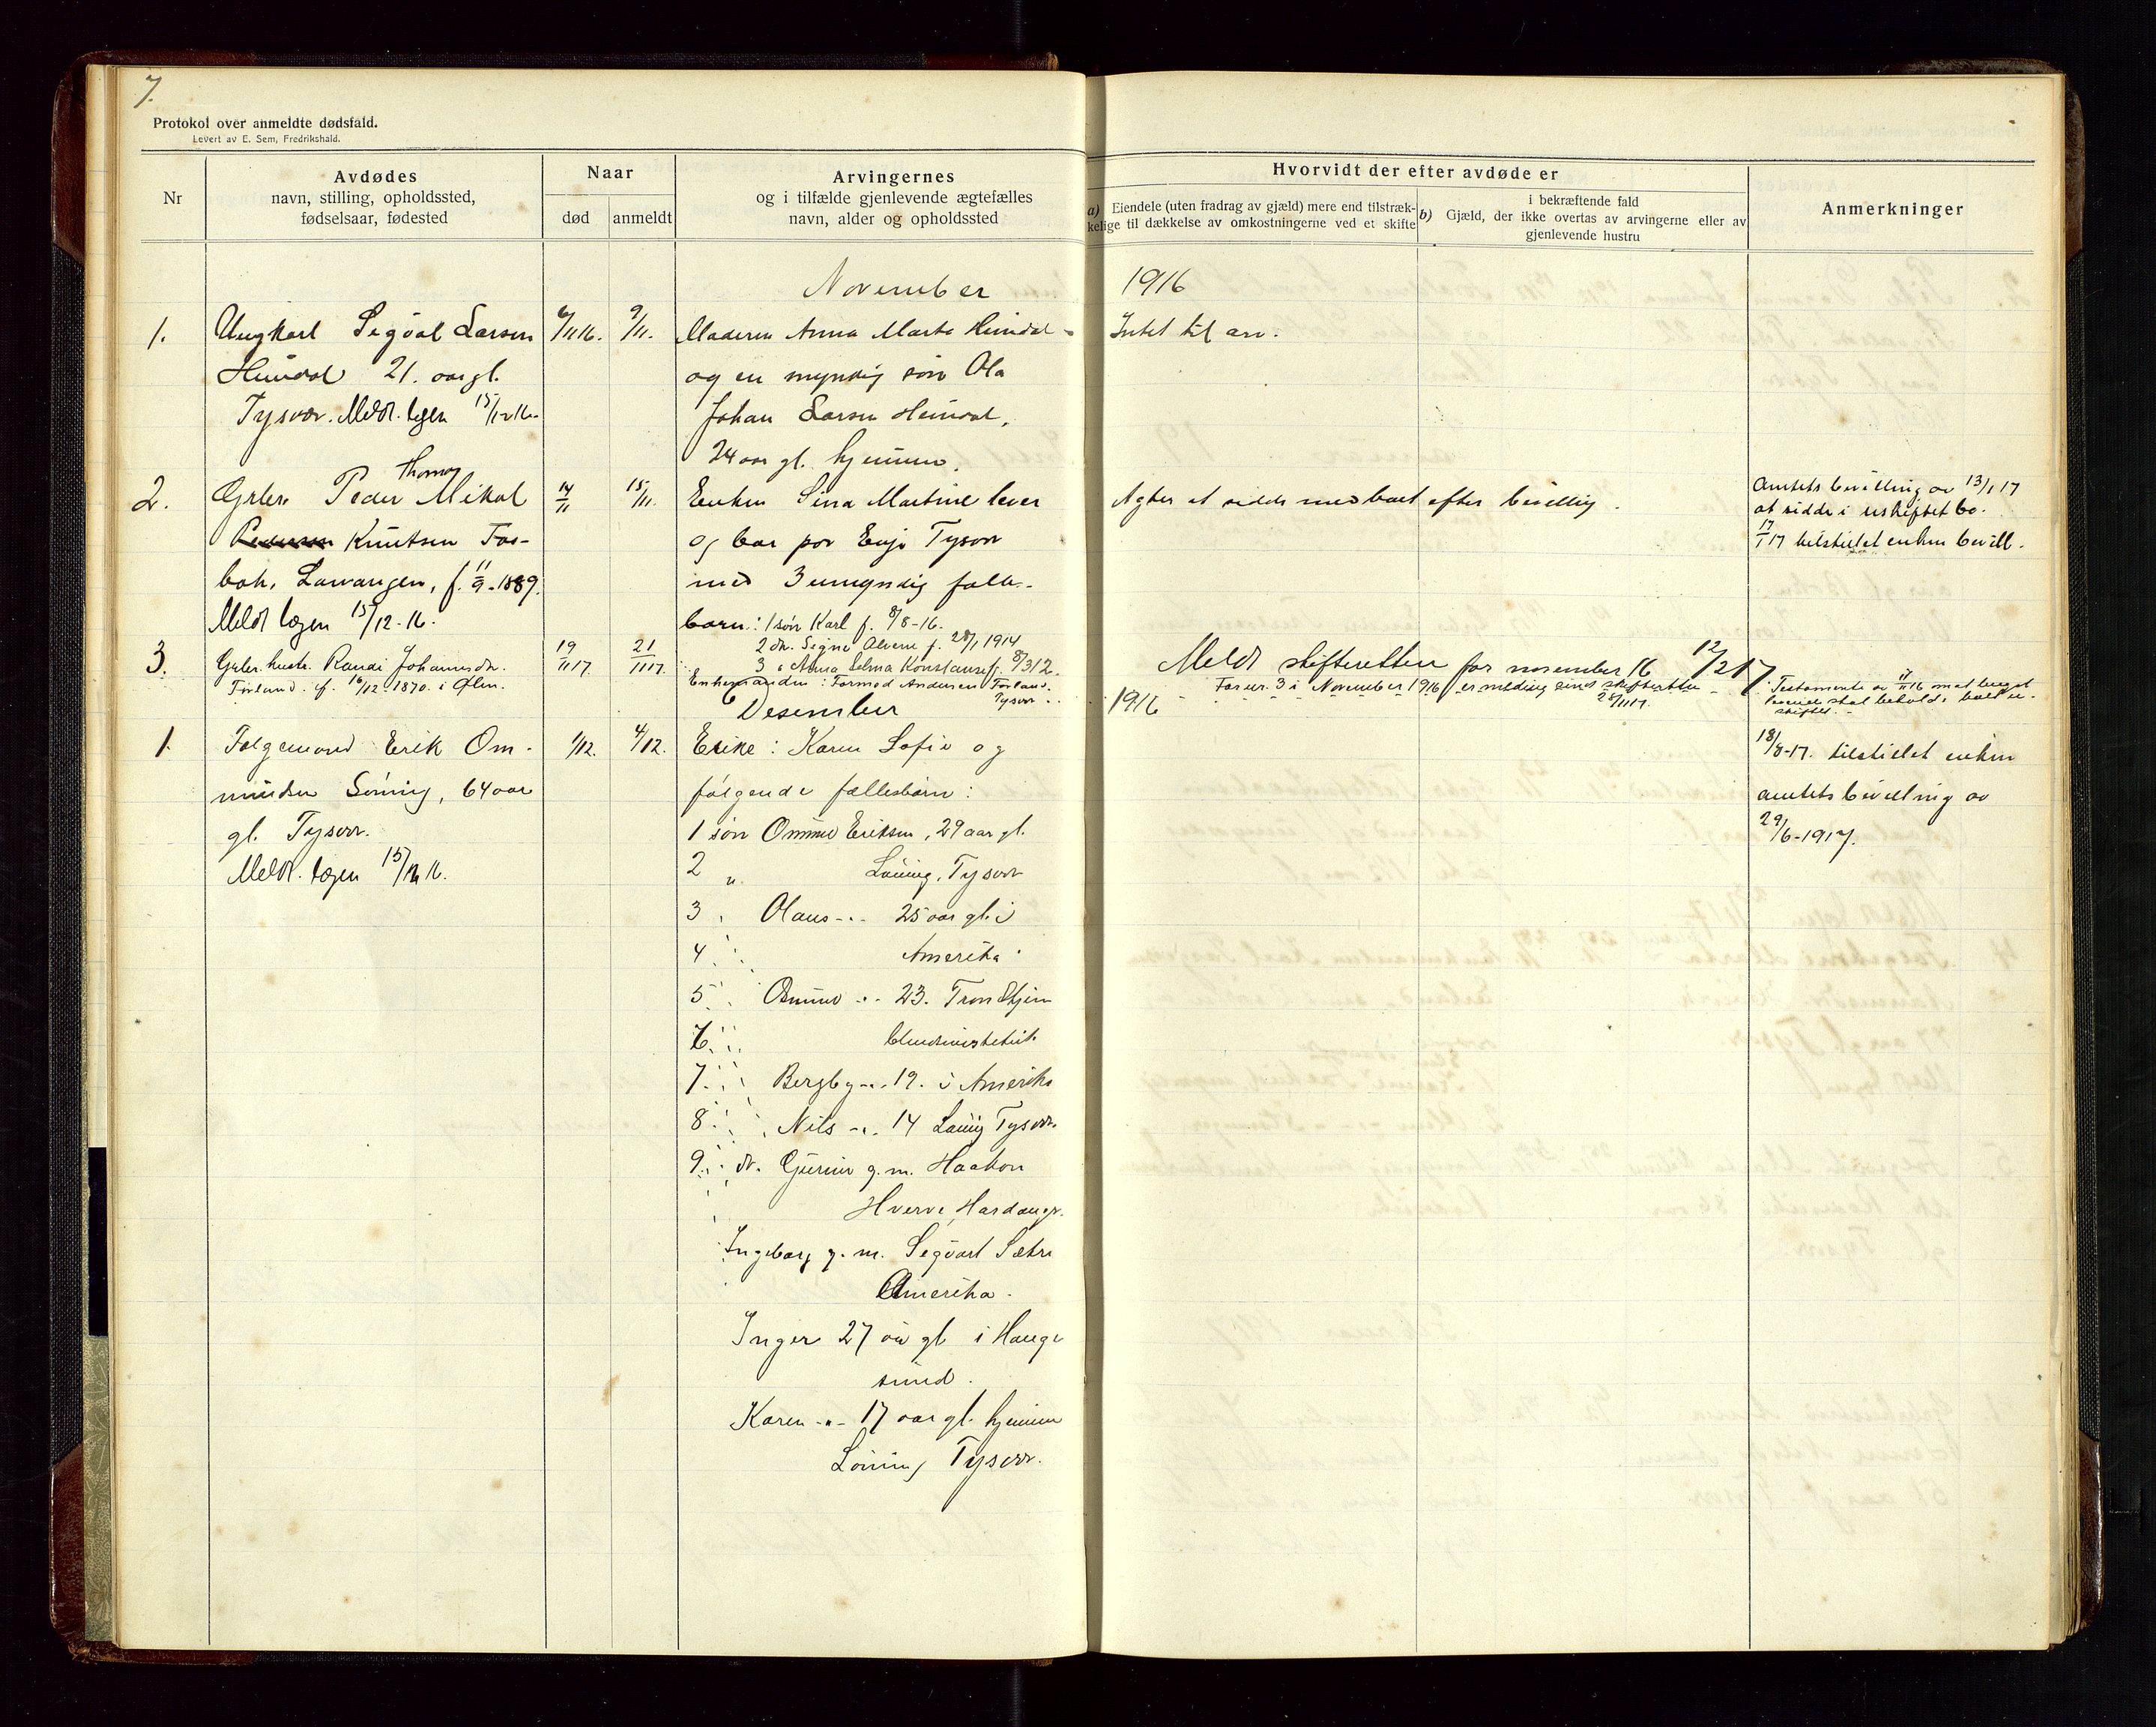 7.
Protokol over anmeldte dødsfald.
Levert av E. Sem, Fredrikshald.
Nr
Avdødes
navn, stilling, opholdssted,
fødselsaar, fødested
Naar
død
anmeldt
Arvingernes
og i tilfælde gjenlevende ægtefælles
navn, alder og opholdssted
Hvorvidt der efter avdøde er
a) Eiendele (uten fradrag av gjæld) mere end tilstræk-
kelige til dækkelse av omkostningerne ved et skifte
b)
i bekræftende fald
Gjæld, der ikke overtas av arvingerne eller av
gjenlevende hustru
Anmerkninger
November
1916
1.
Ungkarl Sigval Larsen
6/11 16.
9/11.
Moderen Anna Marta Heimdal -
Intet til arv.
21. aar gl.
og en myndig søn Ola
Tysvær. Meldt. lægen 15/12 16.
Johan Larsen
24 aar gl. hjemme.
2.
Peder Thomas Mikal
14/11
15/11.
Enken Sina Martine lever
Agter at sidde med boet efter bevilling.
Amtets bevilling av 13/1 17
Knutsen Fos-
og bor paa Tysvær
at sidde i uskiftet bo.
bak, f. 11/9-1889.
med 3 umyndig fælles-
17/1 17 tilstillet enken bevill.
Meldt lægen 15/12-16.
barn: 1 søn Karl f. 8/8-16.
2 dt. Signe f. 28/1 1914
3.
Grbr. hustr. Randi Johannesdt.
19/11 17
21/11 17.
3 " Anna Selma Konstanse f. 8/3 12.
Førland. f. 16/12-1870. i Ølen.
Enkemanden: Tormod Andersen Førland.
Tysvær
Meldt skifteretten for november 16 12/2 17
For nr. 3 i November 1916 er melding sendt skifteretten
28/11 17.
Testamente av 11/11 16
skal beholde boet u-
skiftet.
Desember
1916
1.
Følgemand Erik Om-
1/12.
4/12.
Enke: Karen Sofie og
18/8-17. tilstillet enken
mundsen 64 aar
følgende fællesbarn:
amtets bevilling av
gl. Tysvær.
1 søn Ommund Eriksen, 29 aar gl.
29/6-1917.
Meldt. lægen 15/12 16.
2 " Tysvær
3 " Olaus -"- 25 aar gl. i
4 " Amerika
5 " -"- 23. Trondhjem
6
7. " -"- 19. i Amerika
8. " Nils -"- 14 Tysvær.
9. " dt. g. m. Haakon
Hardanger.
Ingeborg g. m. Sigvart Sætre
Amerika.
Inger 27 aar gl. i Hauge
sund.
Karen -"- 17 aar gl. hjemme
Tysvær.